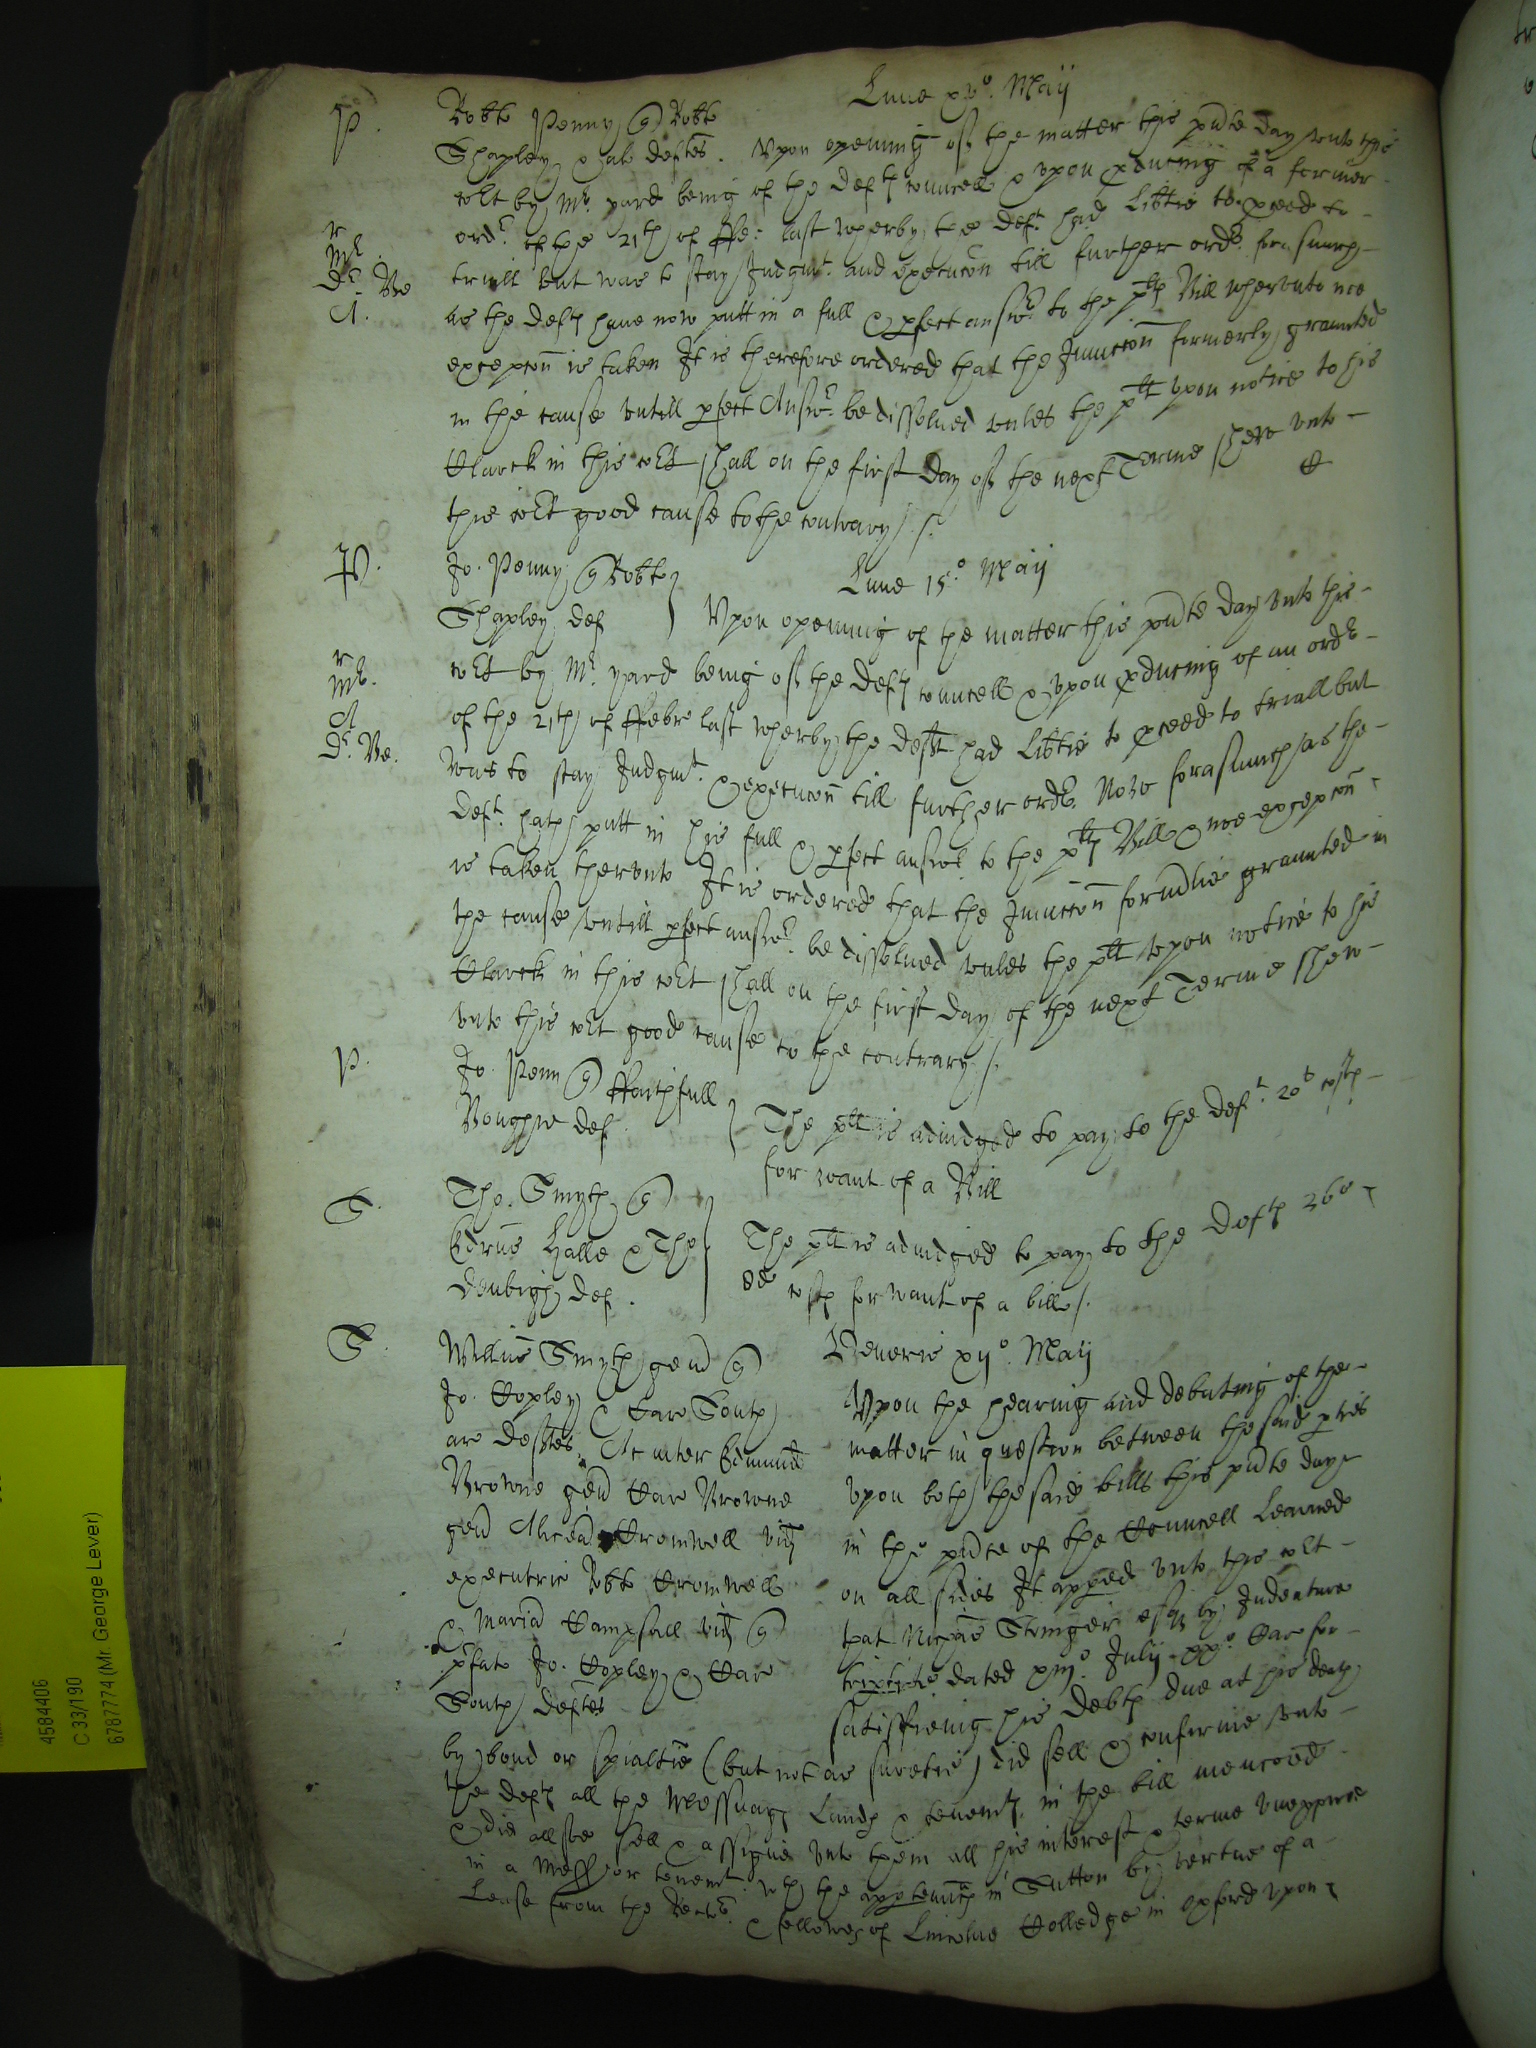 Lune xv.o Maij
P. Robto Penny q Robto
Shapley & al deftes. Vpon opening of the matter this pnte day vnto this
cort by Mr. yard being of the deftes councell & vpon pducing of a former
ordr. of the 21th of ffe: last wherby the deft had libtie to pceed to
triall but was to stay Judgmt. and execucon till further ordr. forasmuch
as the deftes haue now putt in a full & pfect answr. to the pltes Bill wherunto noe
excepcon is taken It is therefore ordered that the Iniuccon formerly graunted
in this cause vntill pfect Answr. be dissolued vnles the plt vpon notice to his
Clarck in this cort shall on the first day of the next Terme shew vnto
this cort good cause to the contrary /.
P. Jo. Penny q Robto
Shapley def
Lune 15.o Maij
Vpon opening of the matter this pnte day vnto this
cort by Mr. yard being of the deftes councell & vpon pducing of an ordr
of the 21th of ffebr last wherby the deft had libtie to pceed to triall but
was to stay Judgmt. & execucon till further ordr. Now forasmuch as the
deft. hath putt in his full & pfect answr to the pltes Bill & noe excepcon
is taken therunto It is ordered that the Iniuccon formerlie graunted in
the cause vntill pfect answr. be dissolued vnles the plt vpon notice to his
Clarck in this cort shall on the first day of the next Terme shew
vnto this cort good cause to the contrary /.
P. Jo. Penn q ffaithfull
Boughie def.
The plt is adiudged to pay to the deft. 20s costes
for want of a Bill
S. Tho. Smyth q
Edrus Halle & Tho.
Denbigh def.
The plt is adiudged to pay to the deftes 26s
8d costes for want of a bill /.
S. Willus Smyth gen q
Jo. Copley & Car South
ar deftes. Ac inter Edmund
Browne gen Car Browne
gen Cromwell vid
executric Robt Cromwell
& Maria Campsall vid q
pfat Jo. Copley & Car
South deftes
Veneris xijo. Maij
Vpon the hearing and debating of the
matter in question between the said pties
vpon both the said bills this pnte day
in the pnce of the Councell Learned
on all sides It apped vnto this cort
that Nichas Stringer esqr by Indenture
triptite dated xiijo. Julij xxo. Car for
satisfieing his debtes due at his death
by bond or spialtie (but not as suretie) did sell & confirme vnto
the deftes all the Messuages Landes & tenemtes. in the bill menconed
& did allsoe sell & assigne vnto them all his interest & terme vnexpired
in a Mess or tenemt. wth the apptennces in Sutton by vertue of a
Lease from the Rector. & fellowes of Lincolne Colledge in Oxford vpon
4584406
C 33/190
6787774 (Mr. George Lever)